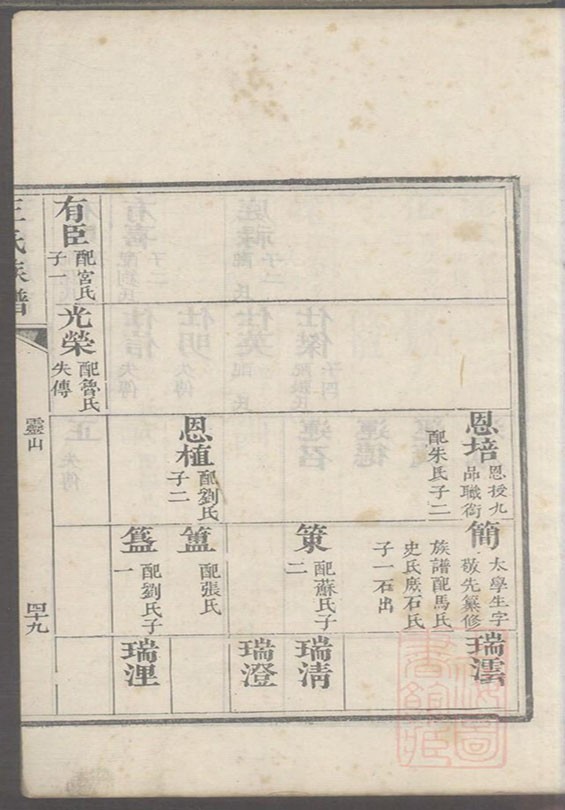 恩培 恩授九
品職銜
配朱氏子二
簡 太學生字
敬先纂修
族譜配馬氏
史氏庶石氏
子一石出
瑞澐
策 配蘇氏子
二
瑞清
瑞澄
恩植 配劉氏
子二
簠 配張氏
簋 配劉氏子
一
瑞浬
有臣 配宮氏
子一
光榮 配魯氏
失傳
王氏族譜
靈山
四十九